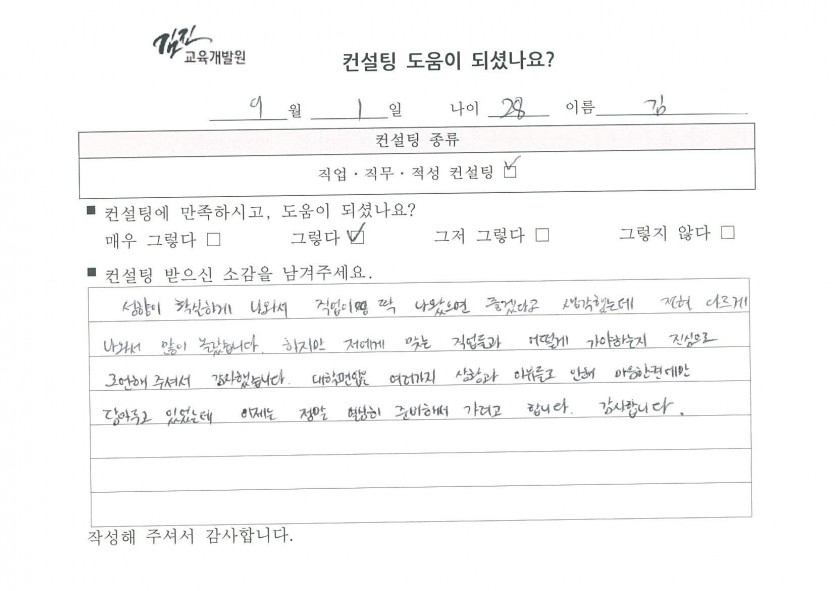 김진
교육개발원
컨설팅 도움이 되셨나요?
9 월 1 일 나이 28 이름 김
컨설팅 종류
직업 · 직무 · 적성 컨설팅 ☑
■ 컨설팅에 만족하시고, 도움이 되셨나요?
매우 그렇다 □ 그렇다 ☑ 그저 그렇다 □ 그렇지 않다 □
■ 컨설팅 받으신 소감을 남겨주세요.
성향이 확실하게 나와서 직업이 딱 나왔으면 좋겠다고 생각했는데 전혀 다르게
나와서 많이 놀랐습니다. 하지만 저에게 맞는 직업들과 어떻게 가야하는지 진심으로
조언해 주셔서 감사했습니다. 대학편입은 여러가지 상황과 이유들로 인해 마음한켠에만
담아두고 있었는데 이제는 정말 열심히 준비해서 가려고 합니다. 감사합니다.
작성해 주셔서 감사합니다.